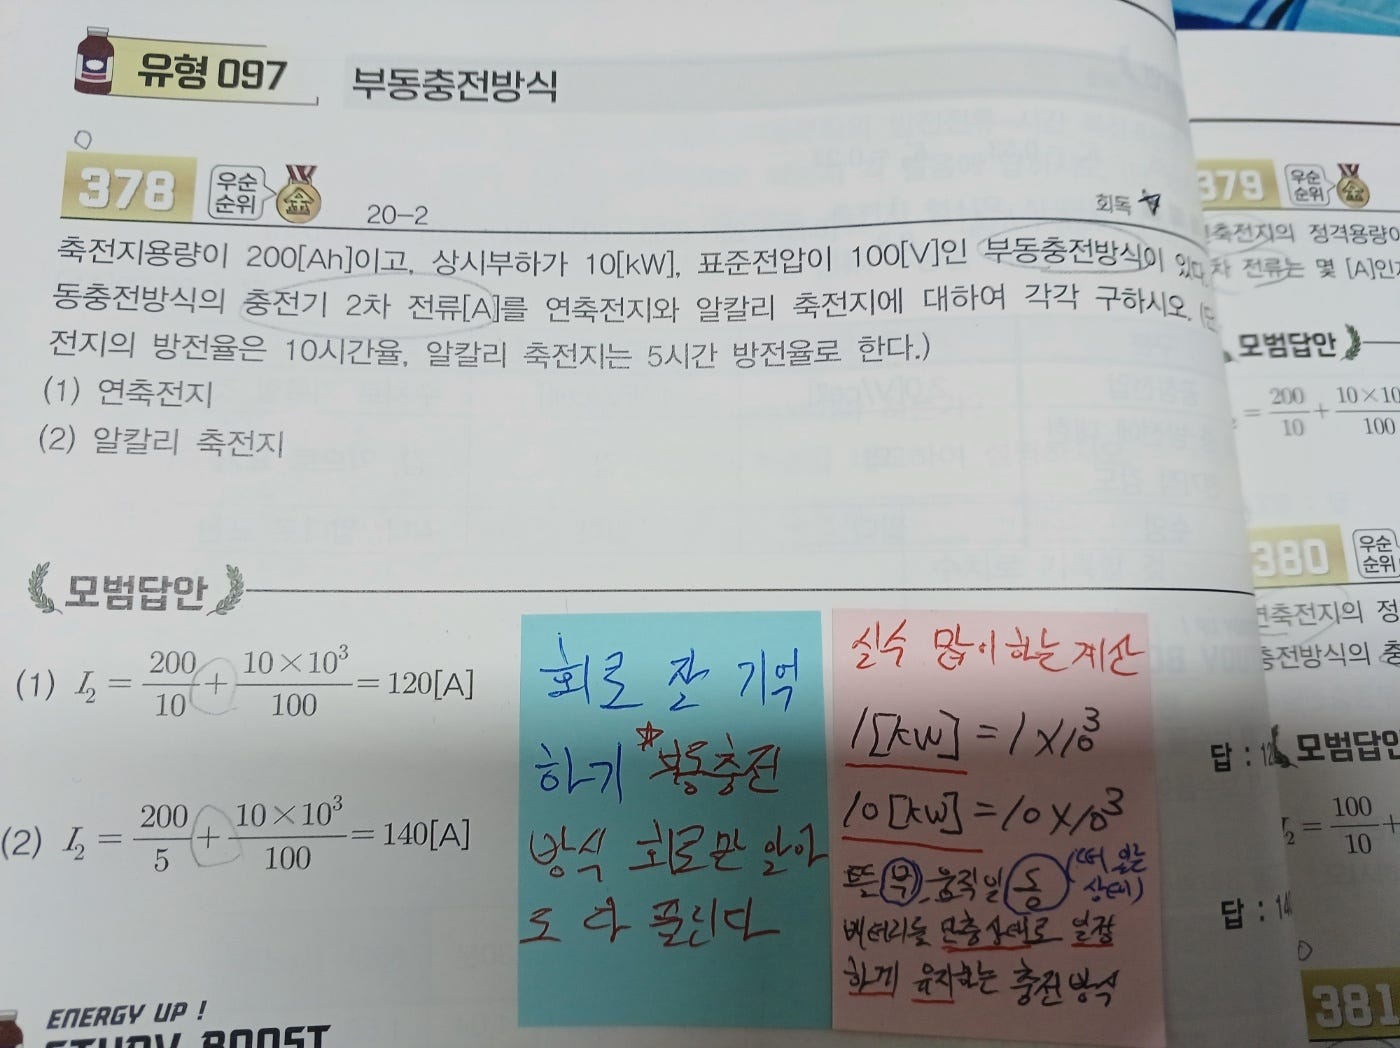 유형 097 부동충전방식
378 우선순위 金 20-2 회독
축전지용량이 200[Ah]이고, 상시부하가 10[kW], 표준전압이 100[V]인 부동충전방식이 있다
동충전방식의 충전기 2차 전류[A]를 연축전지와 알칼리 축전지에 대하여 각각 구하시오. (단
전지의 방전율은 10시간율, 알칼리 축전지는 5시간 방전율로 한다.)
(1) 연축전지
(2) 알칼리 축전지
모범답안
(1) I₂ = 200/10 + 10×10³/100 = 120[A]
(2) I₂ = 200/5 + 10×10³/100 = 140[A]
회로 잘 기억
하기 ☆부동충전
방식 회로만 알아
도 다 풀린다
실수 많이 하는 계산
1[kW] = 1×10³
10[kW] = 10×10³
뜰 부, 움직일 동 (떠 있는 상태)
배터리를 만충상태로 일정
하게 유지하는 충전방식
ENERGY UP !
STUDY BOOST
379 우선순위 金
연축전지의 정격용량이
차 전류는 몇 [A]인가
모범답안
= 200/10 + 10×10/100
답 : 12
380 우선순위
연축전지의 정
충전방식의 충
모범답안
I₂ = 100/10 +
답 : 14
381